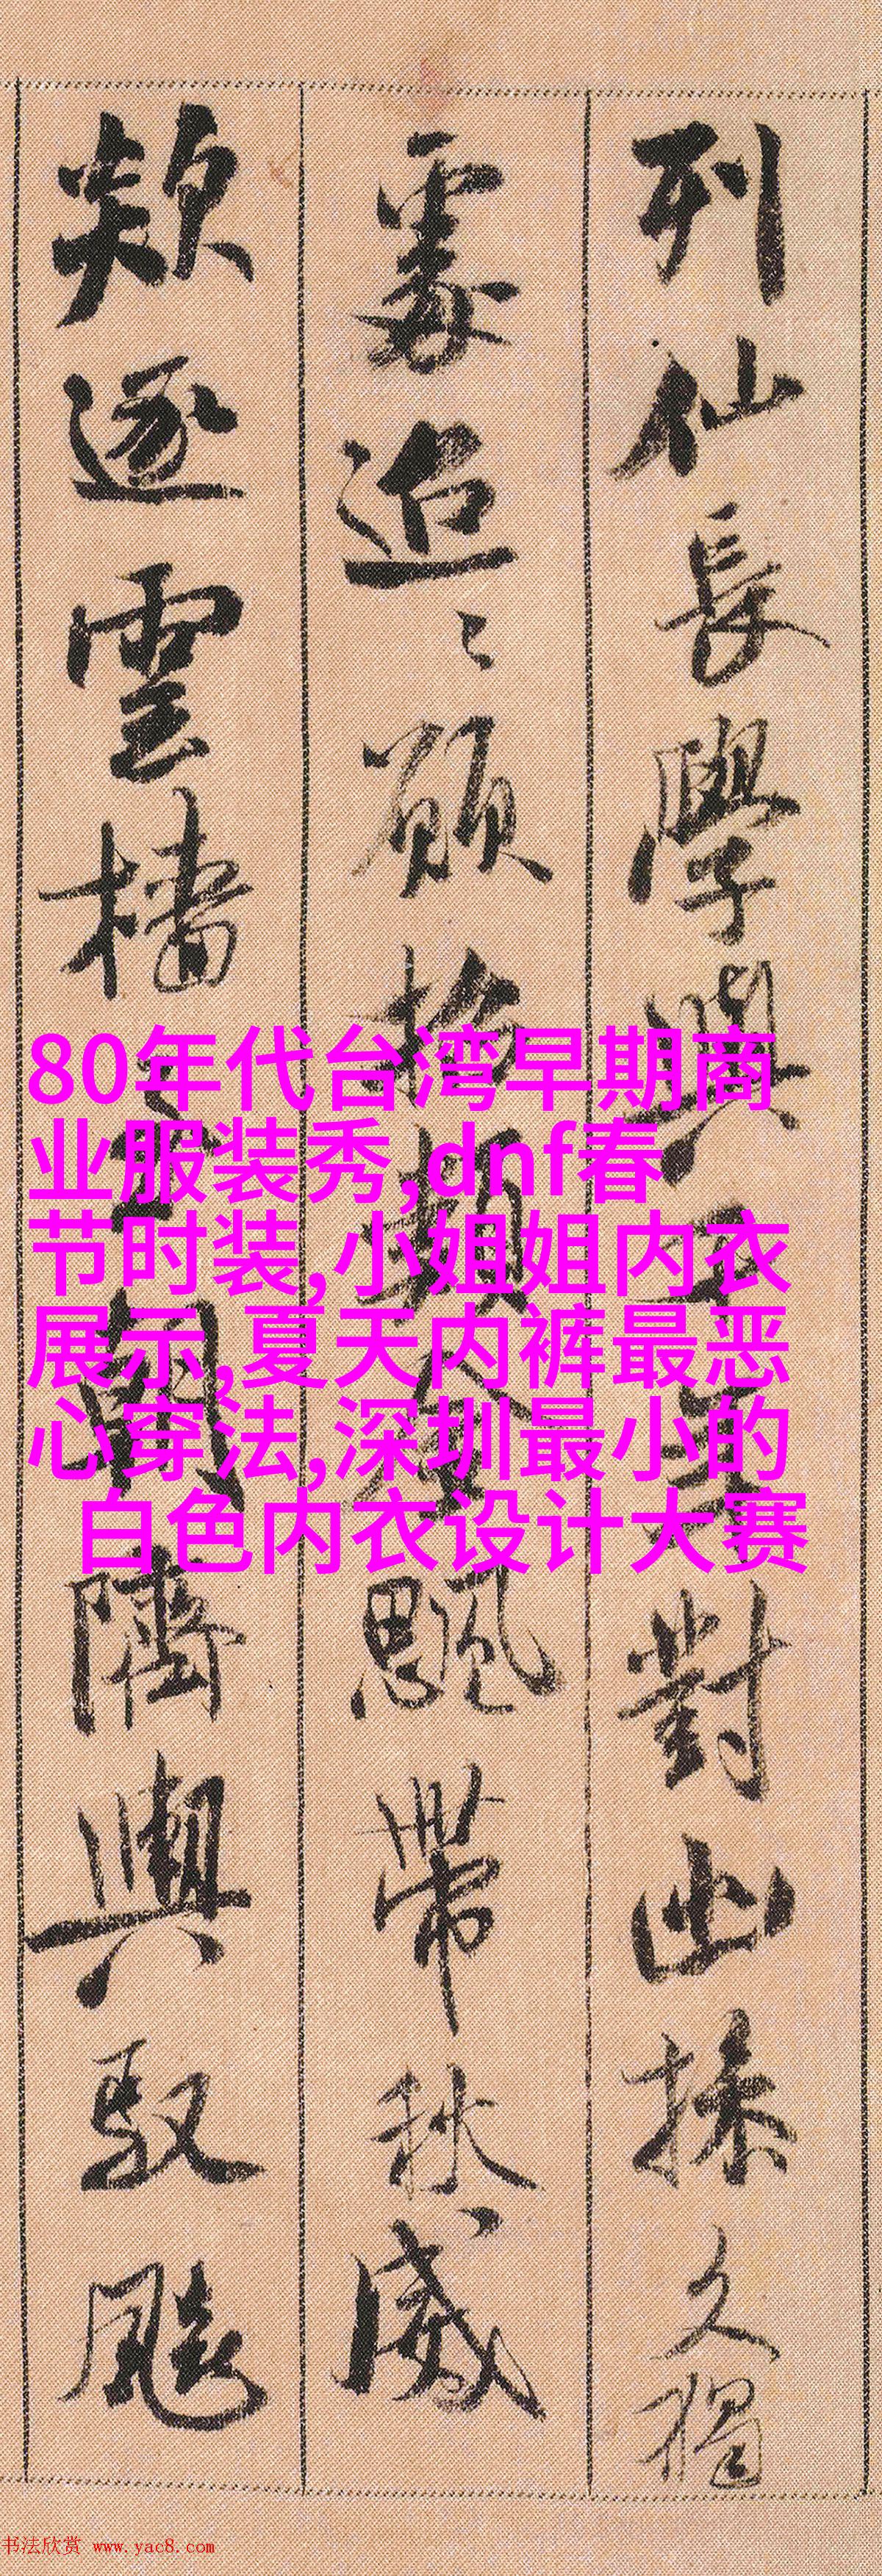 列仙長學與對山採久獨
追〻願飄帶秋威
欻逐雲檣濟興馭飈
80年代台湾早期商
业服装秀,dnf春
节时装,小姐姐内衣
展示,夏天内裤最恶
心穿法,深圳最小的
白色内衣设计大赛
书法欣赏 www.yac8.com